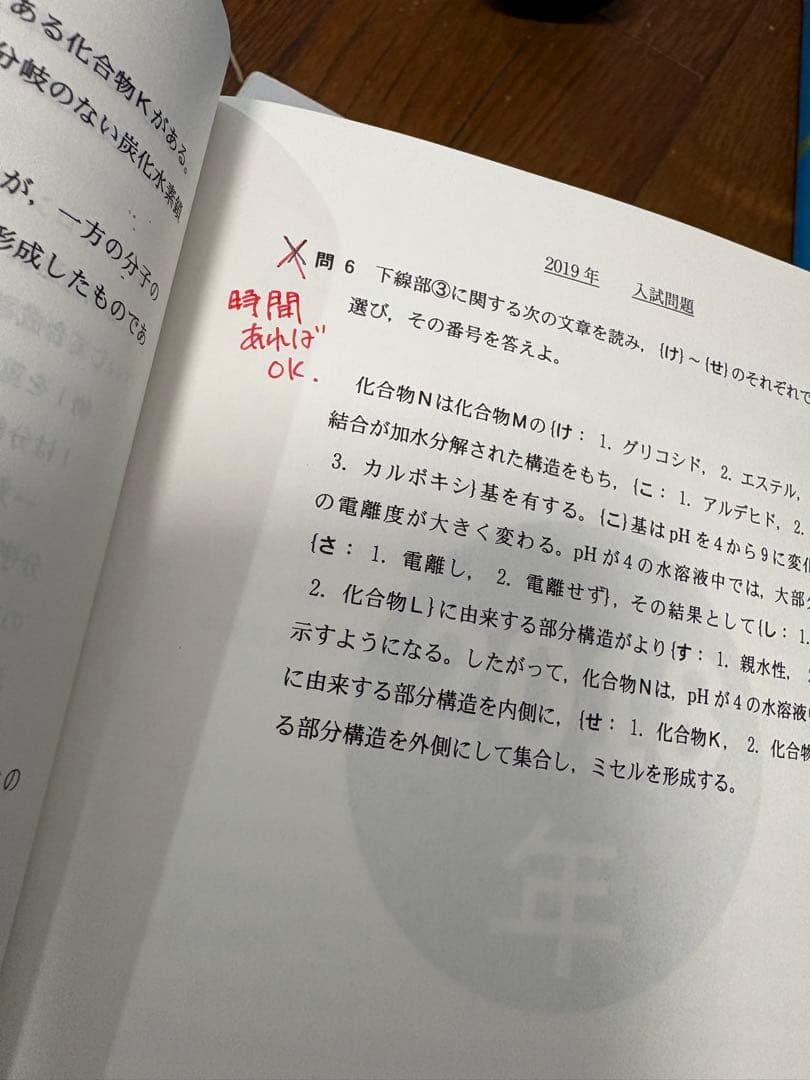 ある化合物Kがある。
分岐のない炭化水素鎖
が，一方の分子の
形成したものであ
の
2019年 入試問題
問6 下線部③に関する次の文章を読み，{け}～{せ}のそれぞれで
選び，その番号を答えよ。
時間
あれば
OK.
化合物Nは化合物Mの{け： 1. グリコシド， 2. エステル，
結合が加水分解された構造をもち，{こ： 1. アルデヒド， 2.
3. カルボキシ}基を有する。{こ}基はpHを4から9に変化
の電離度が大きく変わる。pHが4の水溶液中では，大部分
{さ： 1. 電離し， 2. 電離せず}，その結果として{し： 1.
2. 化合物L}に由来する部分構造がより{す： 1. 親水性，
示すようになる。したがって，化合物Nは，pHが4の水溶液
に由来する部分構造を内側に，{せ： 1. 化合物K， 2. 化合物
る部分構造を外側にして集合し，ミセルを形成する。
年